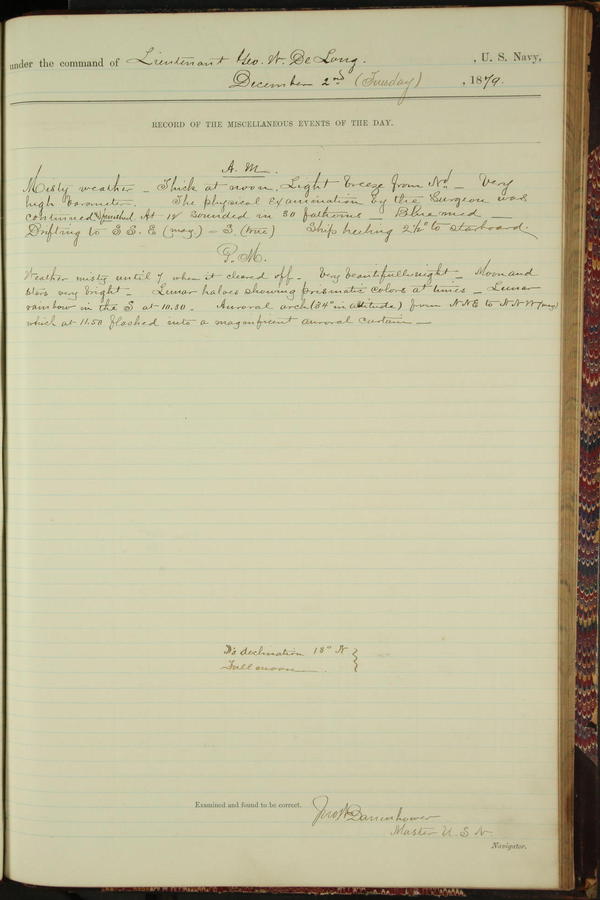 under the command of Lieutenant Geo. W. De Long. , U. S. Navy,
December 2nd (Tuesday) , 1879.
RECORD OF THE MISCELLANEOUS EVENTS OF THE DAY.
A. M.
Misty weather — Thick at noon. Light breeze from Nd — Very
high barometer. The physical examination by the Surgeon was
continued & finished. At 12 sounded in 30 fathoms — Blue mud —
Drifting to S S. E (mag) = S. (true) Ship heeling 2½° to starboard.
P. M.
Weather misty until 7, when it cleared off. Very beautiful night — Moon and
stars very bright — Lunar haloes showing prismatic colors at times — Lunar
rainbow in the S at 10.30. Auroral arch (34° in altitude) from N N E to N N W (mag)
which at 11.50 flashed into a magnificent auroral curtain —
declination 18° N
Full moon
Examined and found to be correct.
Jno W Danenhower
Master U. S. N.
Navigator.